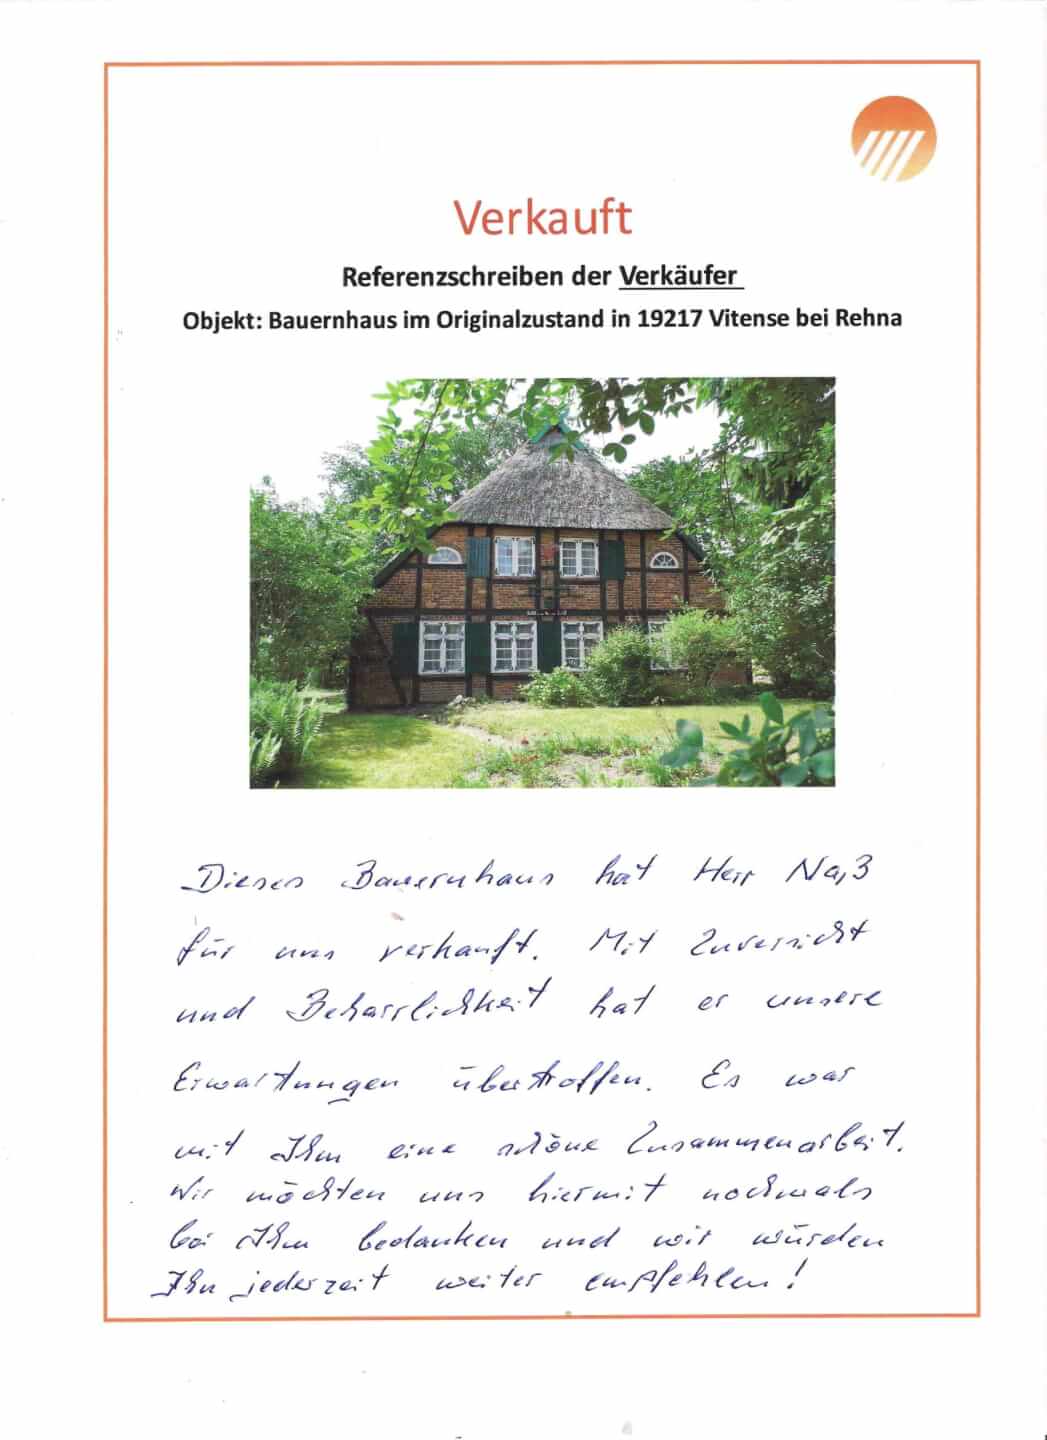 Verkauft
Referenzschreiben der Verkäufer
Objekt: Bauernhaus im Originalzustand in 19217 Vitense bei Rehna
Dieses Bauernhaus hat Herr Naß
für uns verkauft. Mit Zuversicht
und Beharrlichkeit hat er unsere
Erwartungen übertroffen. Es war
mit Ihm eine schöne Zusammenarbeit.
Wir möchten uns hiermit nochmals
bei Ihm bedanken und wir würden
Ihn jederzeit weiter empfehlen!